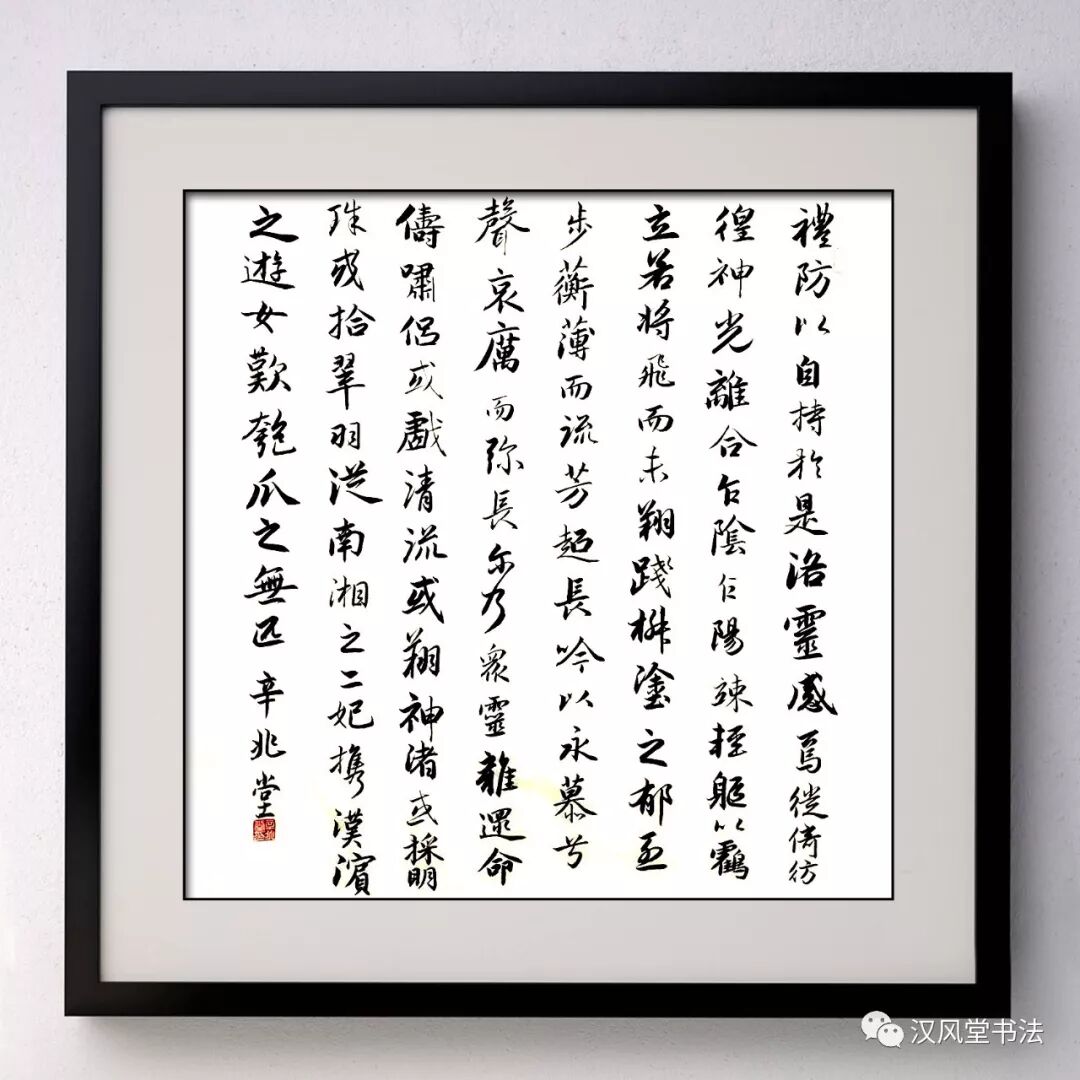 禮防以自持於是洛靈感焉徙倚彷
徨神光離合乍陰乍陽竦輕軀以鶴
立若將飛而未翔踐椒塗之郁烈
步蘅薄而流芳超長吟以永慕兮
聲哀厲而弥長尔乃眾靈雜遝命
儔嘯侶或戲清流或翔神渚或採明
珠或拾翠羽從南湘之二妃攜漢濱
之遊女歎匏瓜之無匹 辛兆堂
汉风堂书法